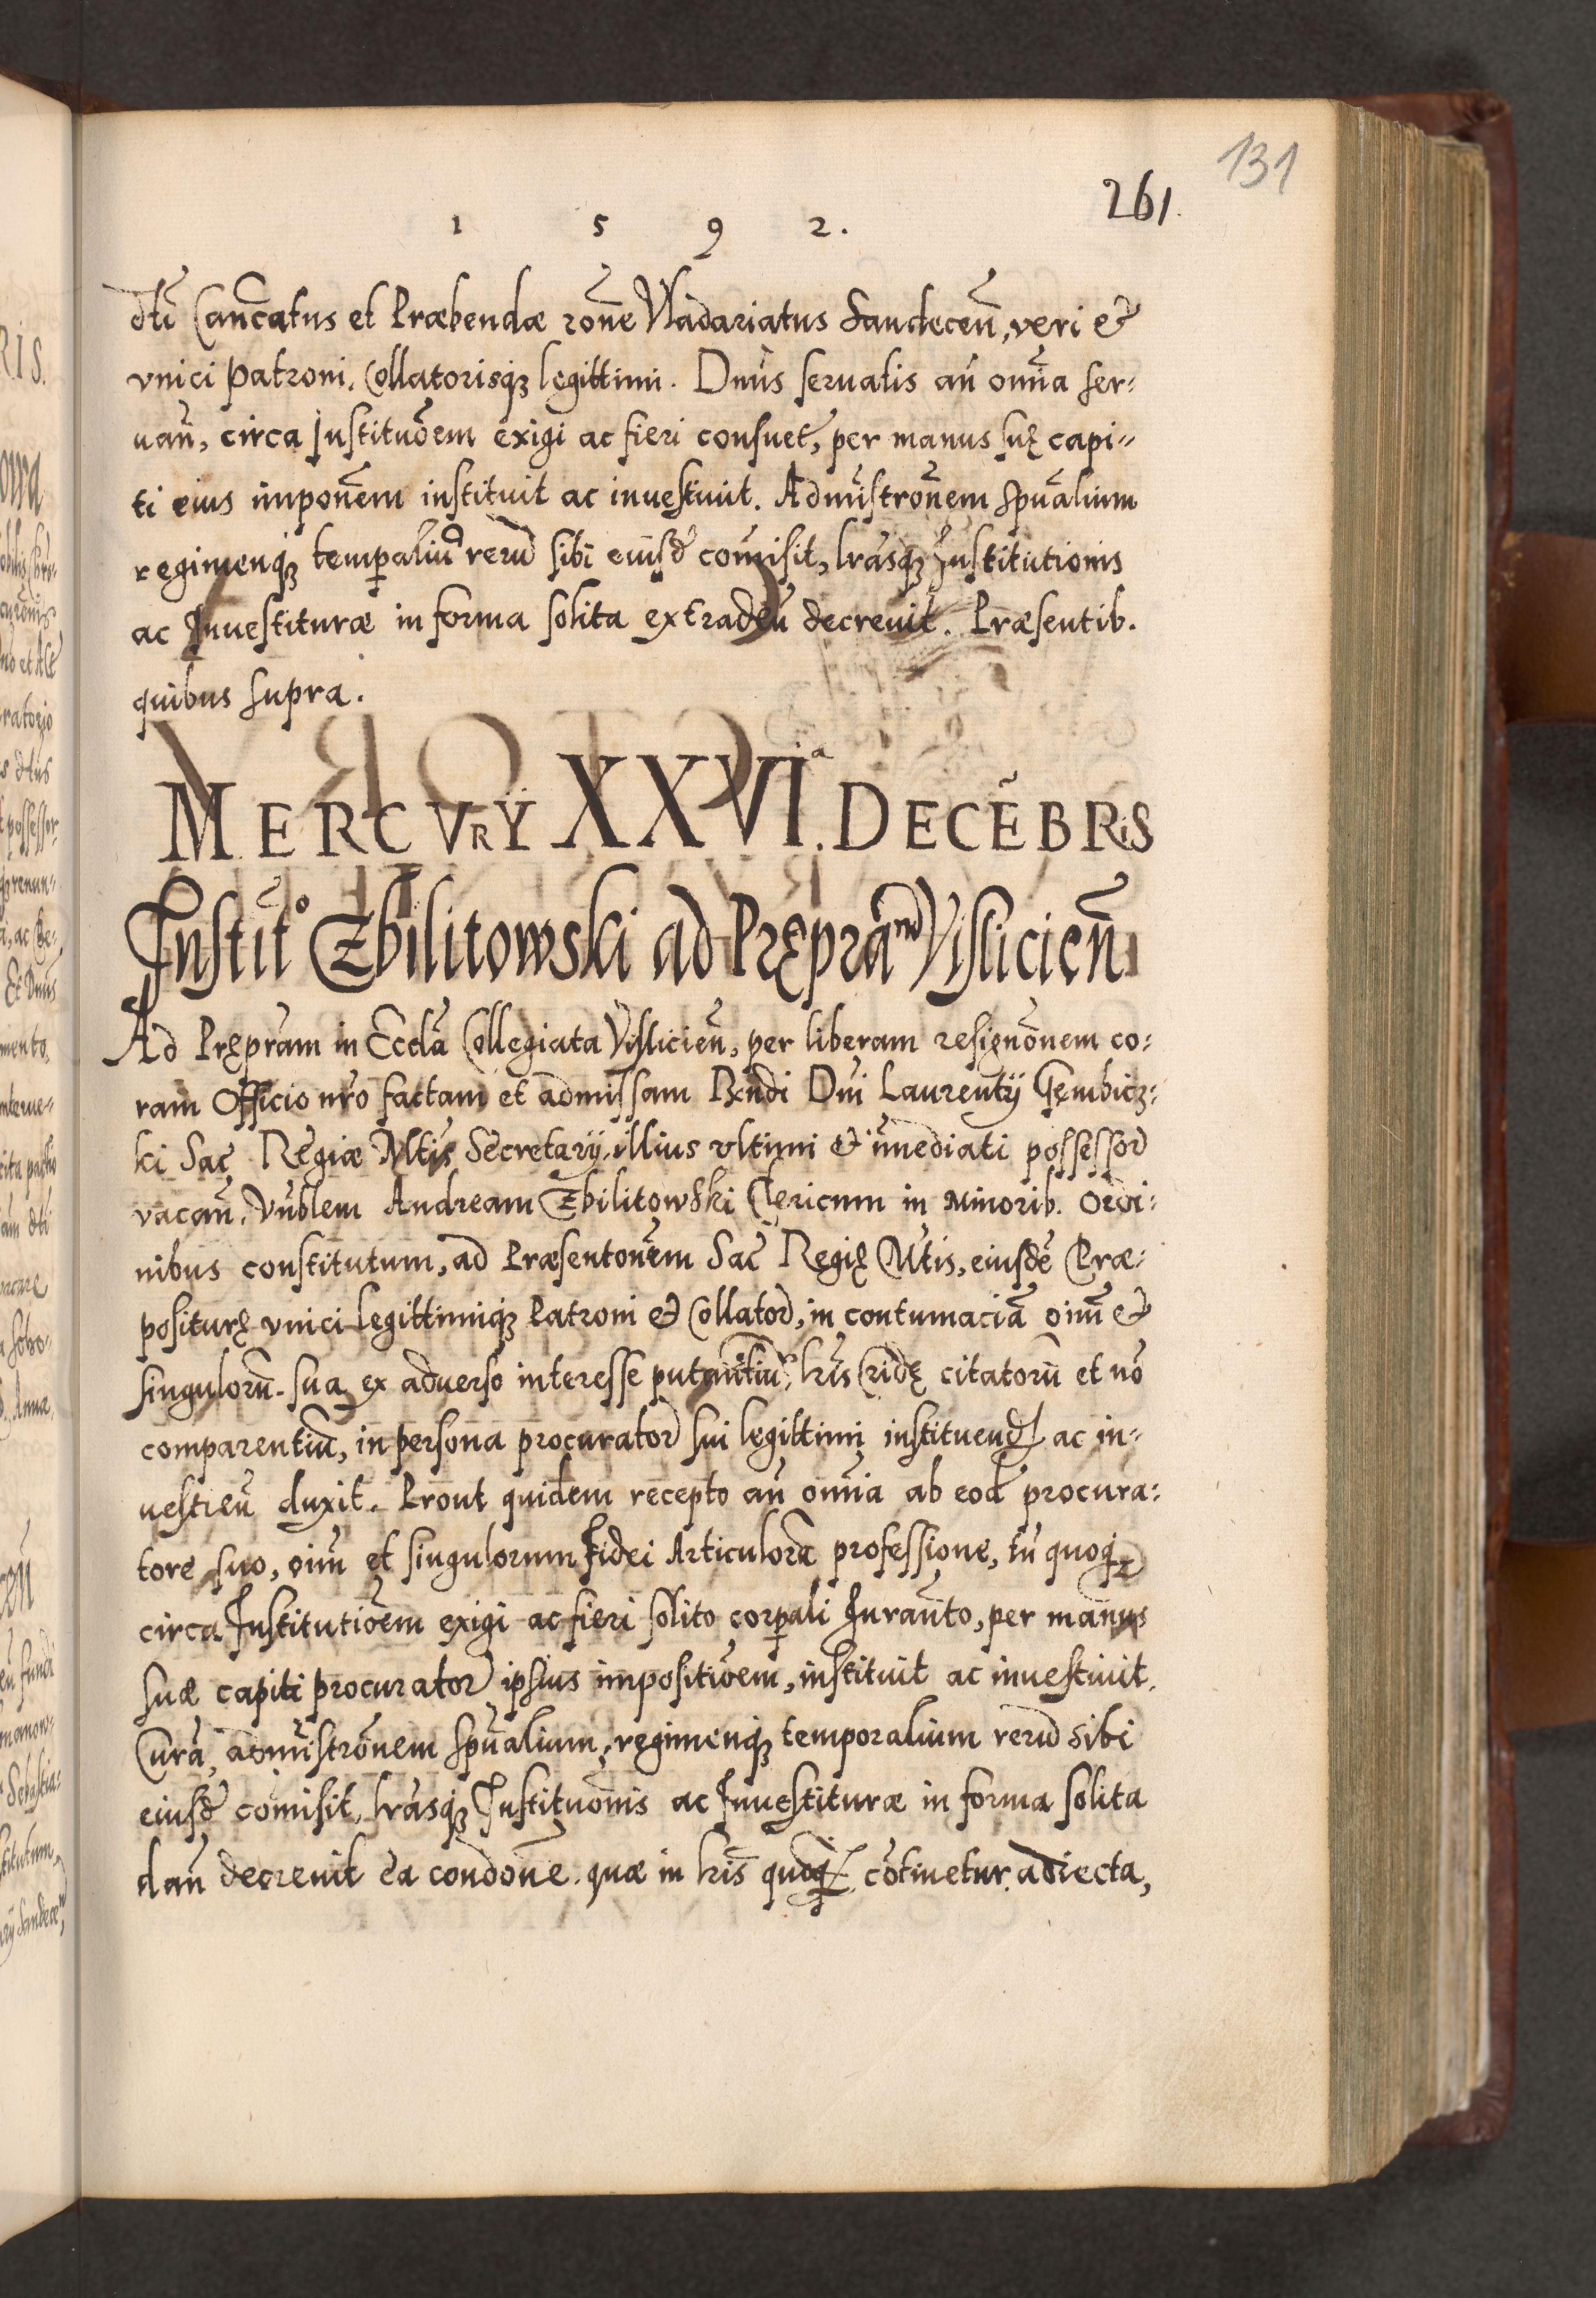 131
261.
1 5 9 2.
dti Canc̃atus et Præbendæ rõne Vladariatus Sandeceñ, veri et
vnici patroni, Collatorisq₃ legittimi. Dnus seruatis añ omnia ser:
uañ, circa Instituõem exigi ac fieri consuet̃, per manus suę capi=
ti eius imponem instituit ac inuestiuit. Admĩstronem spũalium
regimenq₃ temp̱aliũ rerũ sibi eiusđ com̃isit, lr̃asq₃ Institutionis
ac Inuestituræ in forma solita extradeñ decreuit. Præsentib.
quibus supra.
MERCVRY XXVIᵃ. DECẼBRIS
Instit̃o Zbilitowski ad Pręprãm Visliceñ
Ad Pręprãm in Eccl̃a Collegiata Vislicieñ, per liberam resignõnem co:
ram Officio nr̃o factam et admissam Rñdi Dñi Laurentij Gęmbicz:
ki Sac̨ Regiæ Mtis Secretarij, illius vltimi et im̃ediati possessor
vacañ, Vñblem Andream Zbilitowski Clericum in Minorib. Ordi:
nibus constitutum, ad Præsentonem Sac̃ Regię Mtis, eiusdẽ Præ:
positurę vnici legittimiq₃ Patroni et Collator, in contumaciã oim̃ et
singulorũ sua ex aduerso interesse putantiũ, lr̃is Cridę citatorũ et nõ
comparentiũ, in persona procurator sui legittimi instituend ac in=
uestieñ duxit. Prout quidem recepto añ omnia ab eod̃ procura:
tore suo, oim̃ et singulorum Fidei Articulorũ professione, tũ quoq₃
circa Institutiõem exigi ac fieri solito corp̱ali Iuramto, per manus
suæ capiti procurator ipsius impositiõem, instituit ac inuestiuit.
Curã, admĩstronem spũalium, regimenq₃ temporalium rerũ sibi
eiusđ com̃isit, lr̃asq₃ Instituõnis ac Inuestituræ in forma solita
dañ decreuit ea condõne, quæ in lr̃is quoq₃ cõtinetur adiecta,